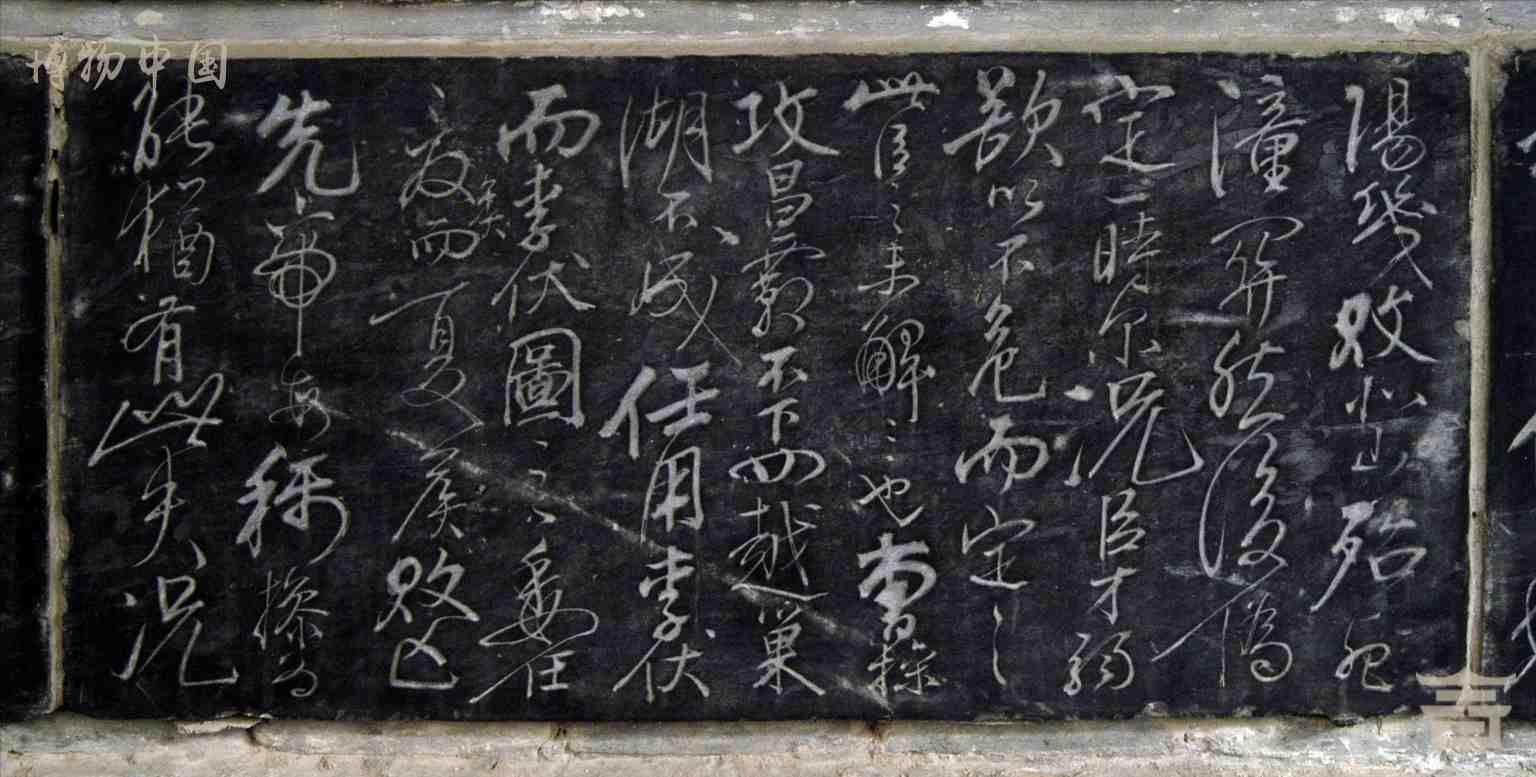 陽幾敗北山殆死
潼關然後偽
定一時尔況臣才弱
欲以不危而定之
此臣之未解三也曹操
攻昌霸不下四越巢
湖不成任用李伏
而李伏圖之委任
夏矦而夏矦敗亡
先帝每稱操為
能猶有此失況
博物中国